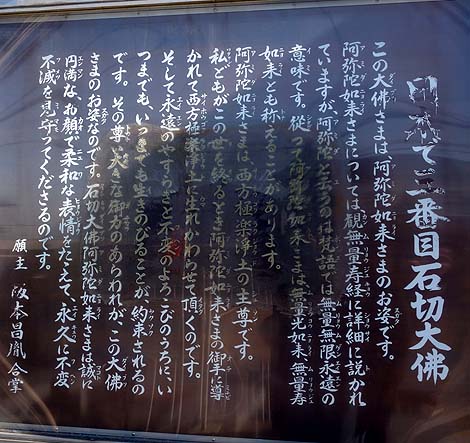 日本で三番目石切大佛
この大佛さまは阿弥陀如来さまのお姿です。
阿弥陀如来さまについては観無量寿経に詳細に説かれ
ていますが阿弥陀と云うのは梵語では無量無限永遠の
意味です。従って阿弥陀如来さまは無量光如来、無量寿
如来とも称えることがあります。
阿弥陀如来さまは、西方極楽浄土の主尊です。
私どもがこの世を終るとき阿弥陀如来さまの御手に導
かれて西方極楽浄土に生れかわらせて頂くのです。
そして永遠のやすらぎと不変のよろこびのうちに、い
つまでも、いつまでも生きのびることが、約束されるの
です。その尊い大きな御力のあらわれが、この大佛
さまのお姿なのです。石切大佛阿弥陀如来さまは誠に
円満な、お顔で柔和な表情をたたえて、永久に不変
不滅を見守ってくださるのです。
願主 阪本昌胤 合掌